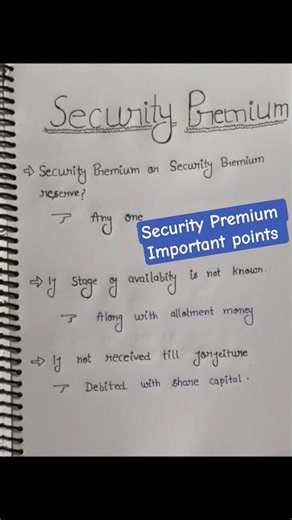 Security Premium
⇒ Security Premium or Security Premium
reserve?
→ Any one
Security Premium
Important points
⇒ If Stage of availabity is not known.
→ Along with allotment money
⇒ If not received till forfeiture
→ Debited with share capital.